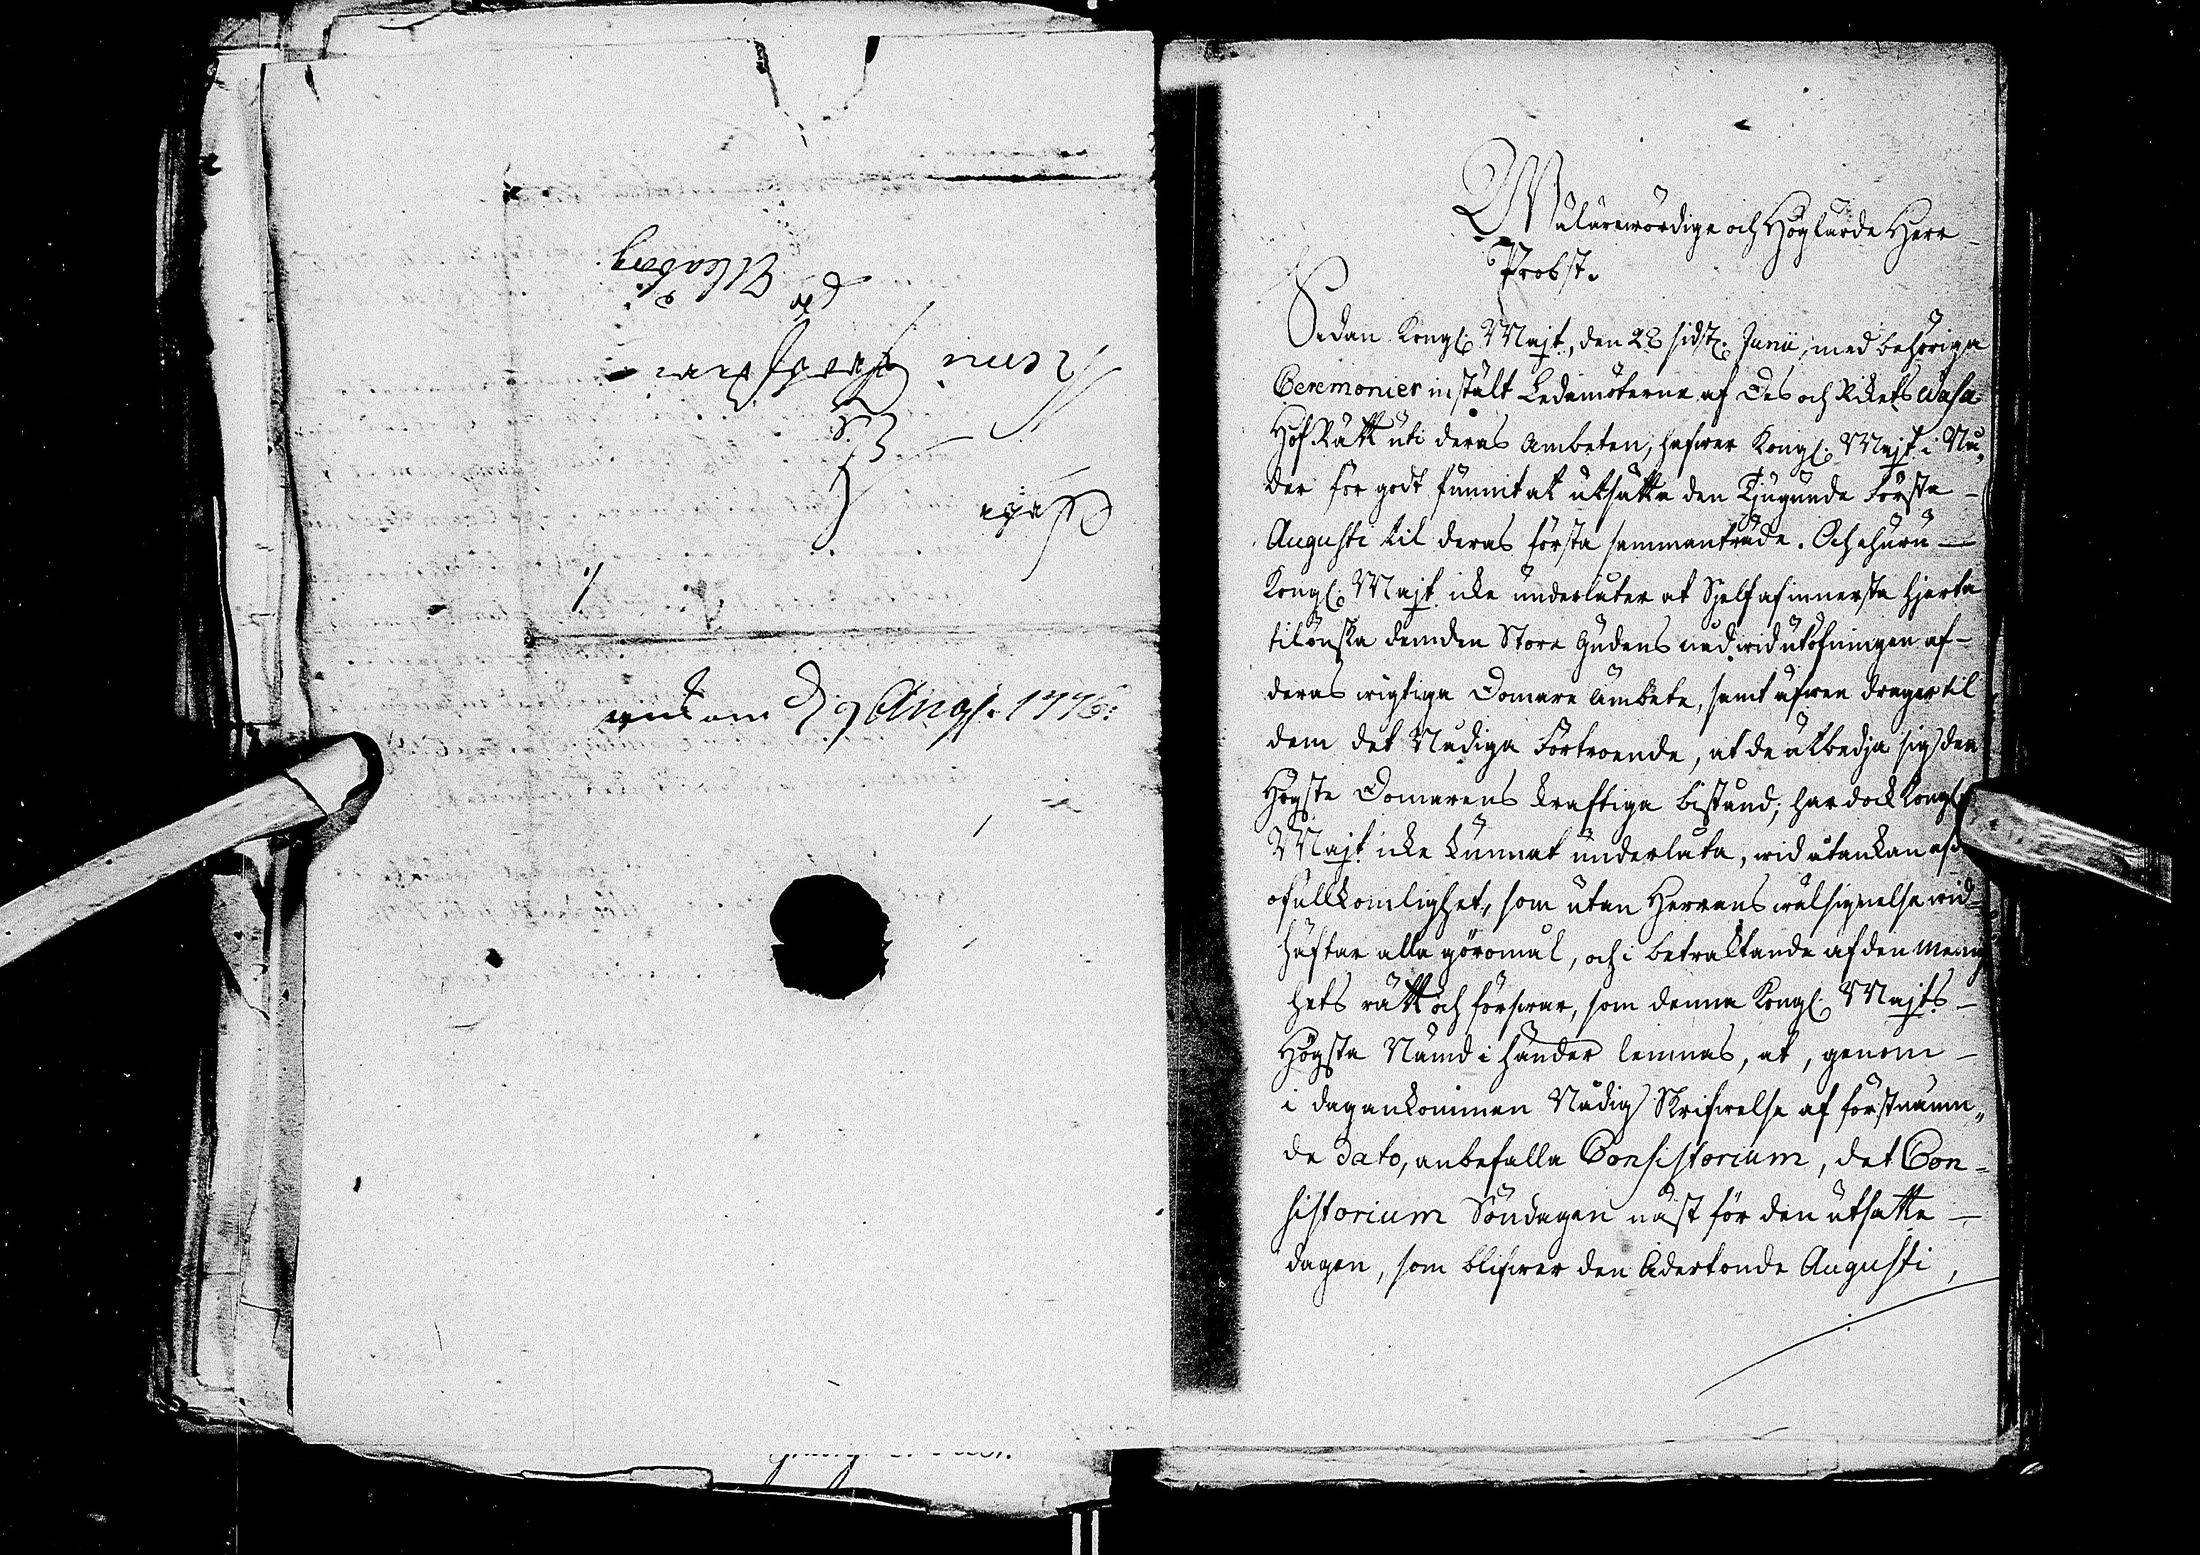 ank om d 9 Augs. 1776:
Uleåborg
Wälärewördige och Höglärde Herr
Probst.
Sedan Kongl. Majt, den 28 sidstl. Junii, med behöriga
Ceremonier instält Ledamöterne af Des och Rikets Wasa
HofRätt uti deras Ambeten, hafwer Kongl. Majt i Nå„
der för godt funnit at utsätta den Tjugunde Förste
Augusti til deras första sammanträde. Och ehuru
Kongl. Majt icke underlåter at Sjelf af innersta hjerta
tilönska dem den Store Gudens nåd wid utöfningen af
deras wigtiga Domare Ämbete, samt äfwen drager til
dem det Nådiga Förtroende, at de utbedja sig den
Högste Domarens kraftiga bistånd; har dock Kongl.
Majt icke kunnat underlåta, wid åtankan af
ofullkomlighet, som utan Herrans wälsignelse wid-
häftar alla göromål, och i betraktande af den menig
hets rätt och förswar, som denna Kongl. Majts
Högsta Nämd i händer lemnas, at, genom
i dag ankommen Nådig Skrifwelse af förstnämn„
de dato, anbefalla Consistorium, det Con-
sistorium Söndagen näst för den utsatte
dagen, som blifwer den Adertonde Augusti,